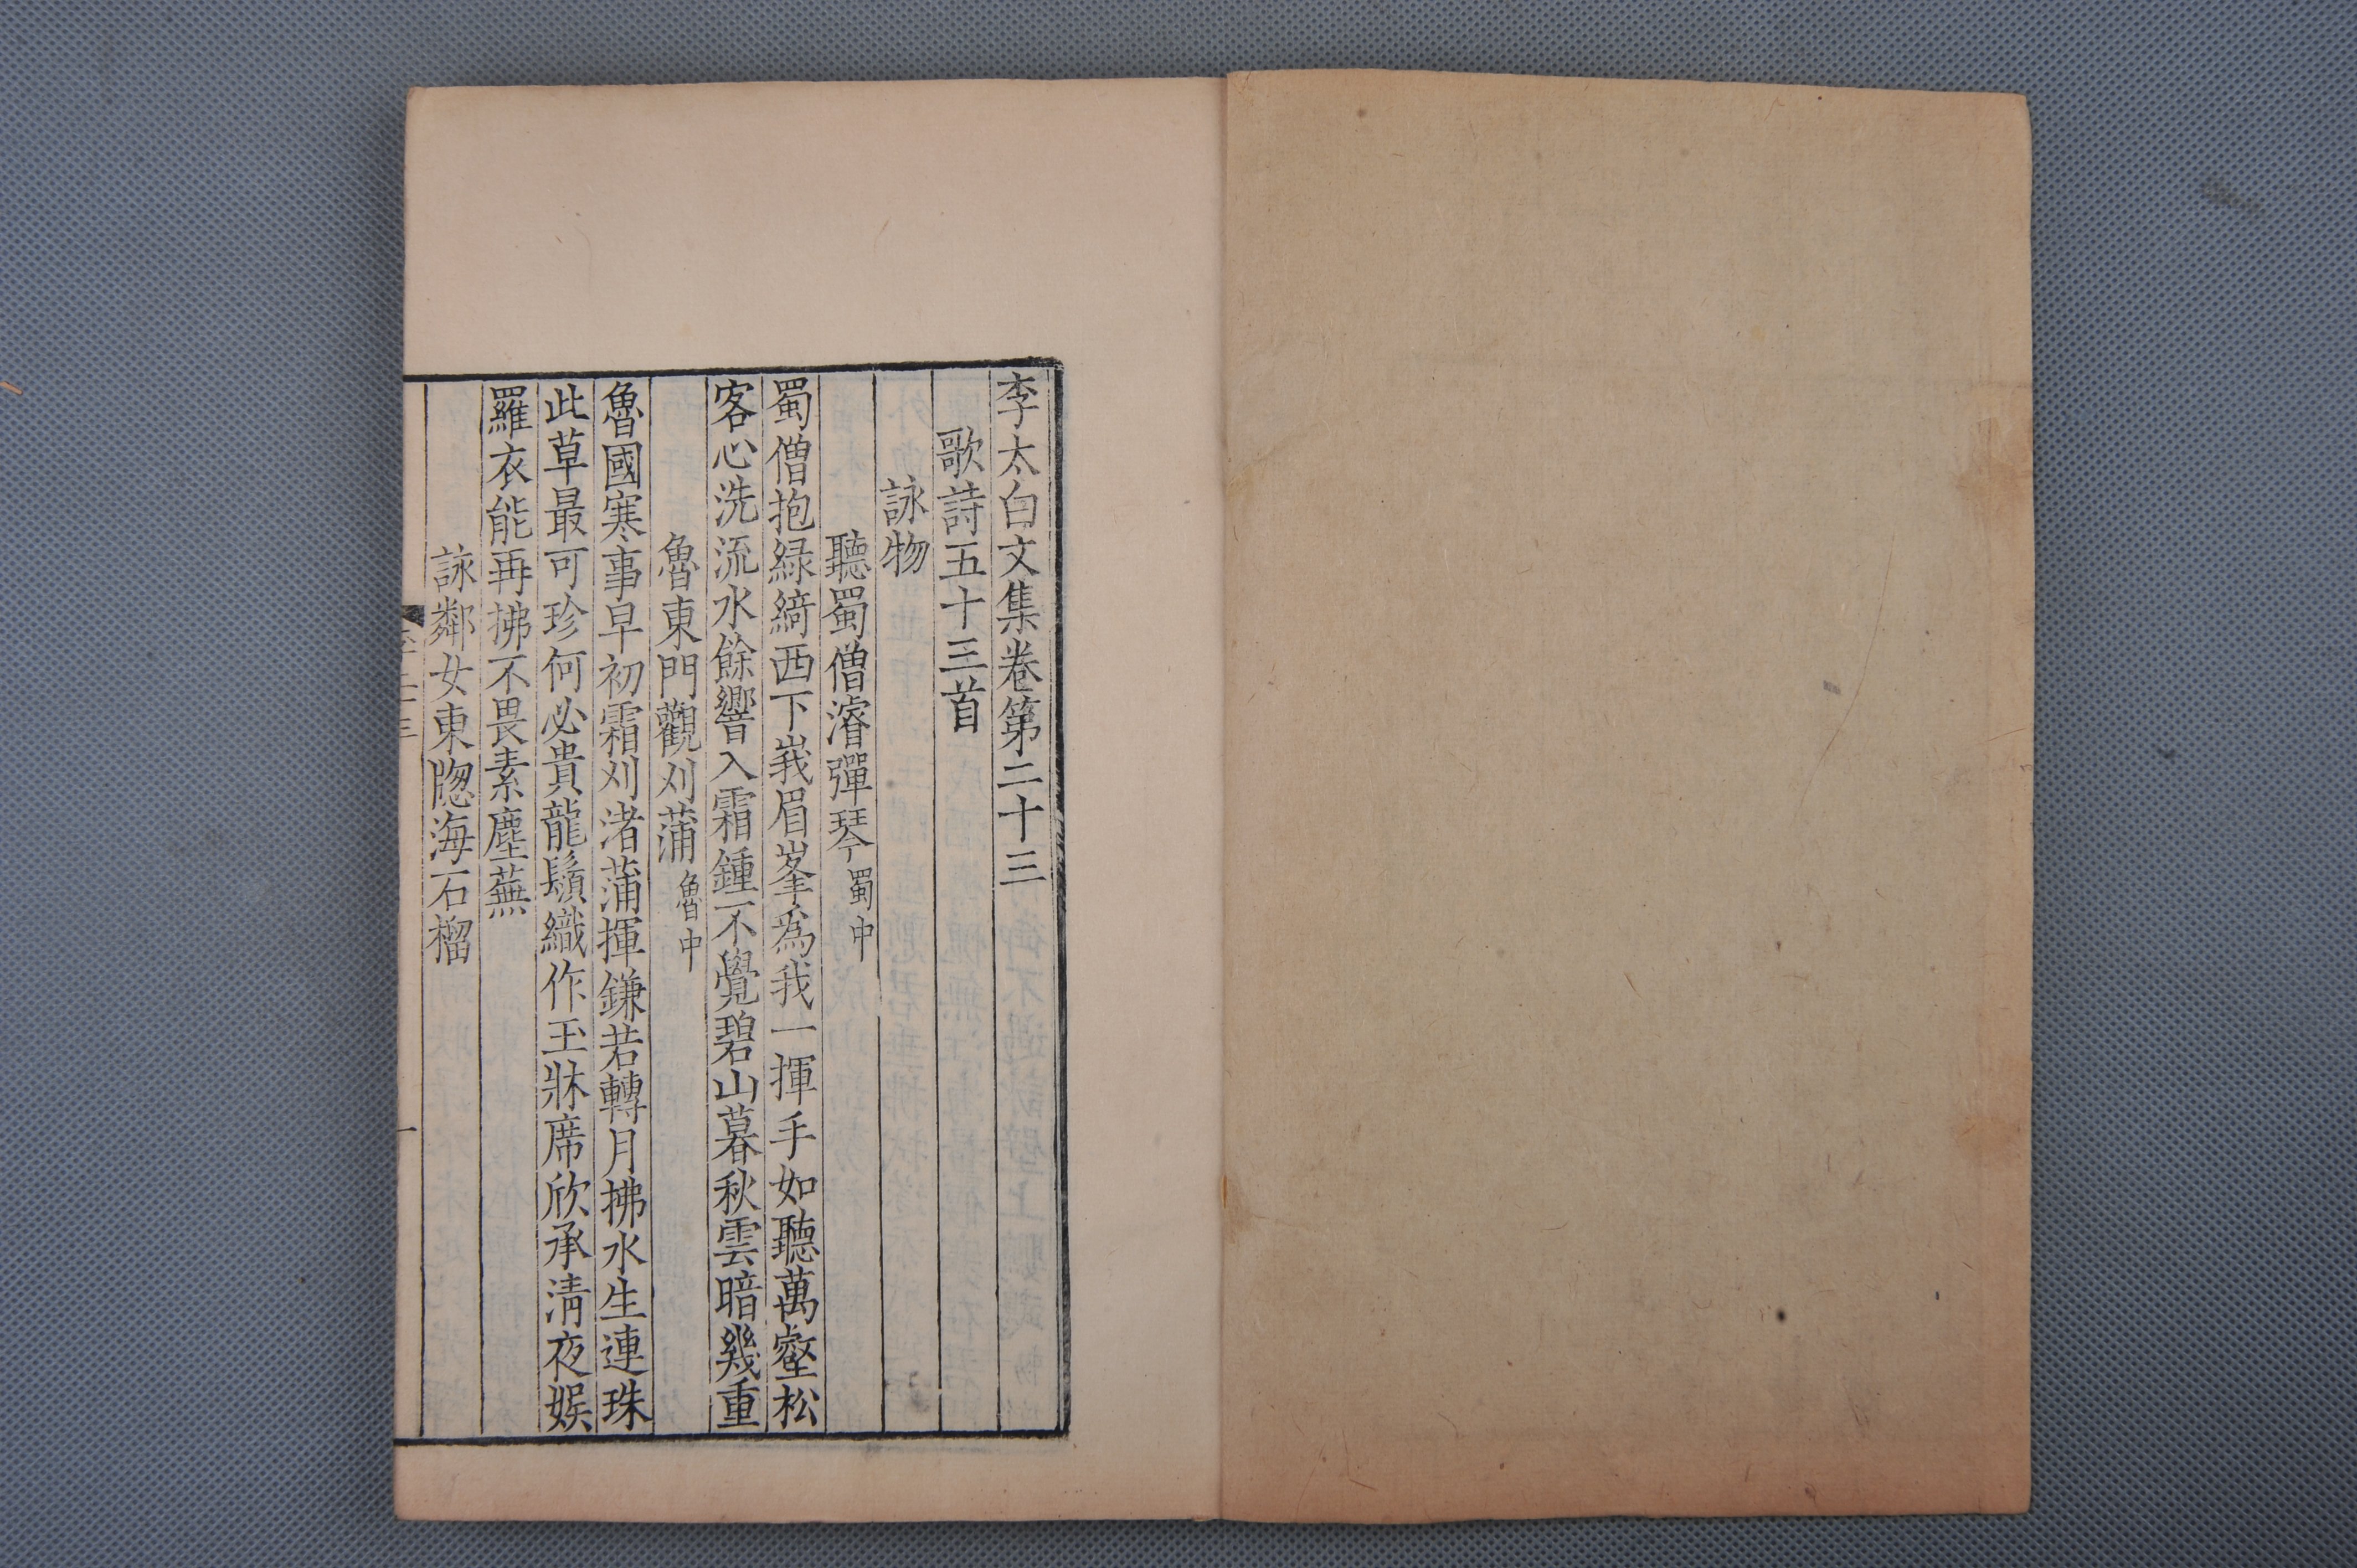 李太白文集卷第二十三
歌詩五十三首
詠物
聽蜀僧濬彈琴 蜀中
蜀僧抱綠綺西下峩眉峯爲我一揮手如聽萬壑松
客心洗流水餘響入霜鍾不覺碧山暮秋雲暗幾重
魯東門觀刈蒲 魯中
魯國寒事早初霜刈渚蒲揮鎌若轉月拂水生連珠
此草最可珍何必貴龍鬚織作玉牀席欣承清夜娛
羅衣能再拂不畏素塵蕪
詠鄰女東窓海石榴